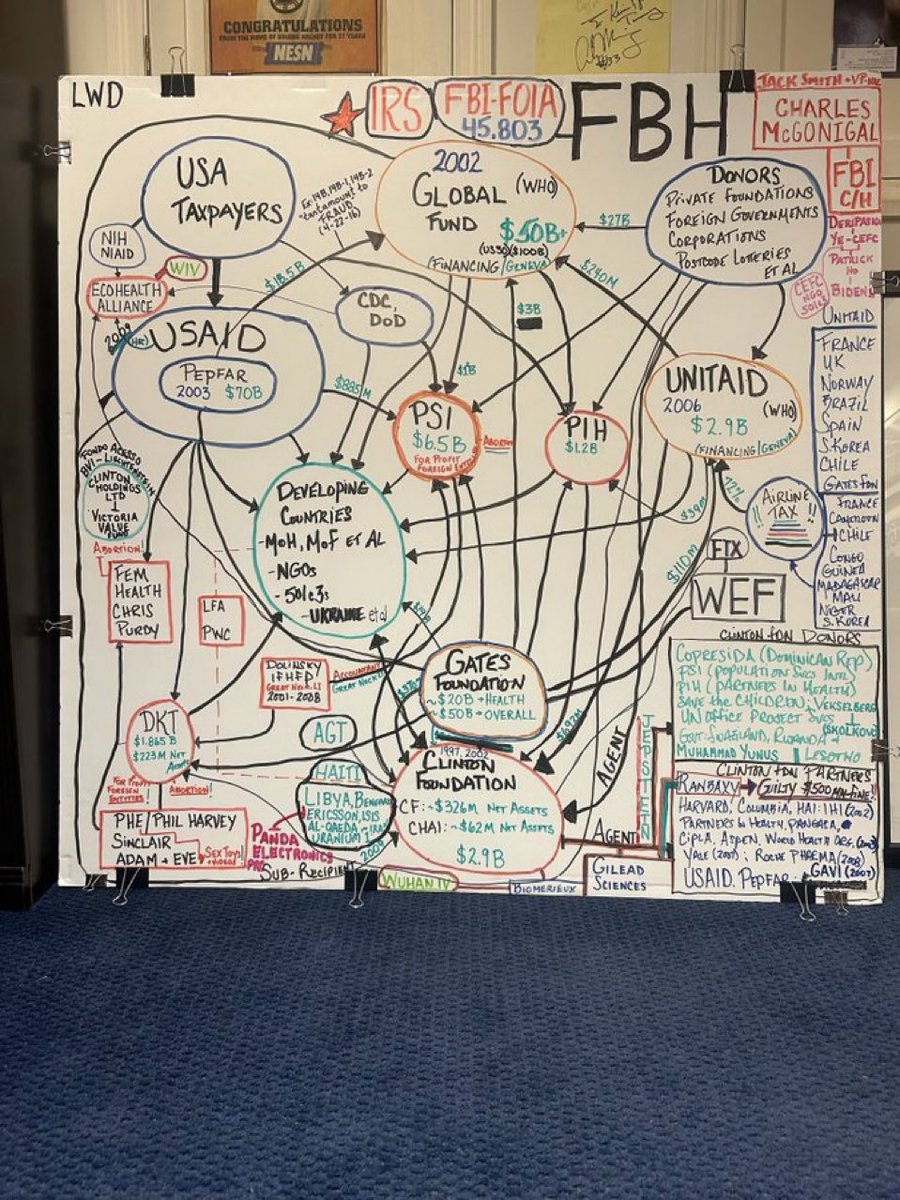 CONGRATULATIONS
NESN
LWD
IRS
FBI-FOIA
45.803
FBH
JACK SMITH
CHARLES
McGONIGAL
FBI
C/H
DERIPASKA
YE-CEFC
PATRICK
HO
BIDENS
CEFC
NGO
501c3
USA
TAXPAYERS
Ex 14B, 14B-1, 14B-2
"tantamount to
FRAUD"
(4-22-16)
2002
GLOBAL (WHO)
FUND
(FINANCING/GENEVA)
DONORS
PRIVATE FOUNDATIONS
FOREIGN GOVERNMENTS
CORPORATIONS
POSTCODE LOTTERIES
ET AL
$27B
$240M
$3B
$18.5B
NIH
NIAID
WIV
ECOHEALTH
ALLIANCE
CDC,
DoD
2009
USAID
PEPFAR
2003 $70B
$885M
$1B
PSI
$6.5B
FOR PROFIT
PIH
$1.2B
UNITAID
2006 (WHO)
$2.9B
(FINANCING/GENEVA)
UNITAID
FRANCE
UK
NORWAY
BRAZIL
SPAIN
S. KOREA
CHILE
GATES FDN
FRANCE
CAMEROON
CHILE
CONGO
GUINEA
MADAGASCAR
MALI
NIGER
S. KOREA
AIRLINE
TAX
72%
$39M
$110M
FTX
WEF
FONDO ACESSO
BVI - LIECHTENSTEIN
CLINTON
HOLDINGS
LTD
VICTORIA
VALUE
FUND
ABORTION!
FEM
HEALTH
CHRIS
PURDY
LFA
PWC
DEVELOPING
COUNTRIES
-MOH, MOF ET AL
-NGOs
-501c3s
-UKRAINE et al
DOLINSKY
IFHFP
GREAT NECK, LI
2001-2008
ACCOUNTANT
GREAT NECK
GATES
FOUNDATION
~$20B +HEALTH
~$50B +OVERALL
DKT
$1.865 B
$223M NET
ASSETS
FOR PROFIT
FOREIGN
ENTITIES
ABORTION!
AGT
HAITI
ERICSSON, ISIS
AL-QAEDA
URANIUM 1
2009
PANDA
ELECTRONICS
PRC
SUB-RECIPIENT
PHE/PHIL HARVEY
SINCLAIR
ADAM + EVE
SEX TOYS
1997, 2002
CLINTON
FOUNDATION
CF: ~$326M NET ASSETS
CHAI: ~$62M NET ASSETS
$2.9B
WUHAN IV
BIOMERIEUX
AGENT
AGENT
JEPSTEIN
GILEAD
SCIENCES
CLINTON FDN DONORS
COPRESIDA (DOMINICAN REP)
PSI (POPULATION SVCS INTL)
PIH (PARTNERS IN HEALTH)
SAVE THE CHILDREN, VEKSELBERG
UN OFFICE PROJECT SVCS
(SKOLKOVO)
GOVT. SWAZILAND, RWANDA +
MUHAMMAD YUNUS LESOTHO
CLINTON FDN PARTNERS
RANBAXY → GUILTY $500MM FINE!!
HARVARD, COLUMBIA, HAI: IHI (2002)
PARTNERS IN HEALTH, PANGAEA,
CIPLA, ASPEN, WORLD HEALTH ORG. (2003)
YALE ROCHE PHARMA (2008)
USAID, PEPFAR GAVI (2007)